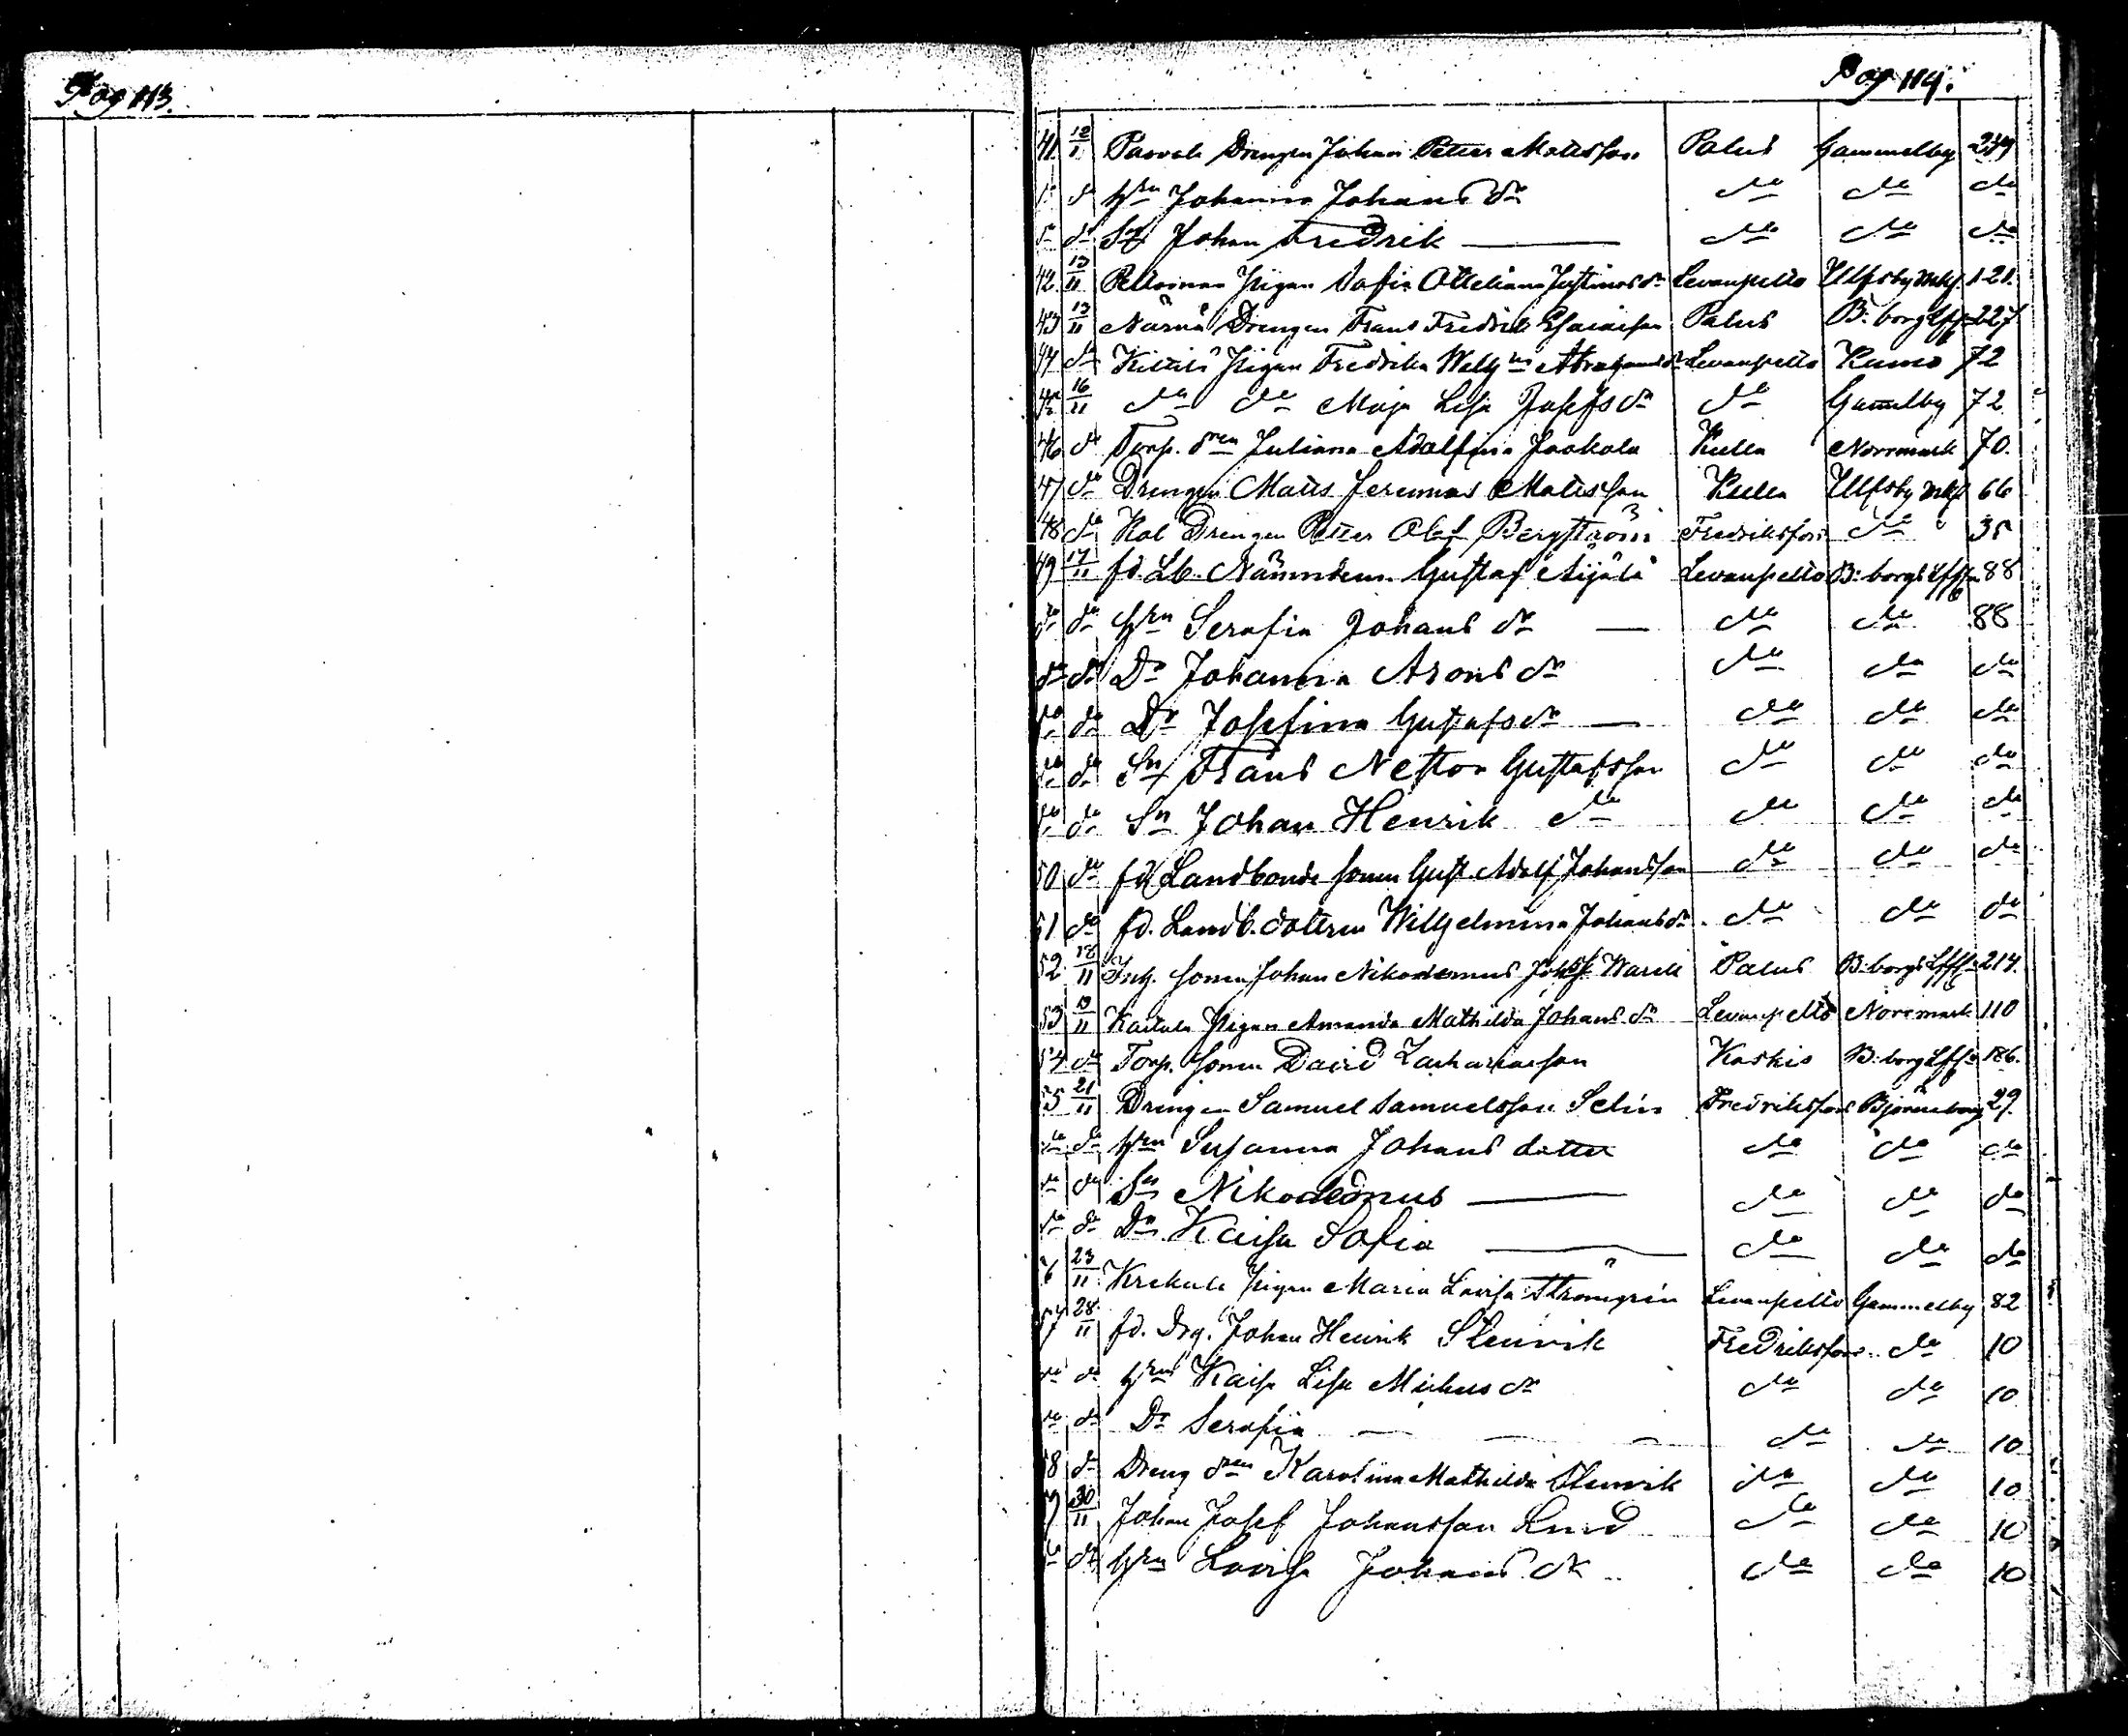 Pag 113.
Pag 114.
41 12/11 Drengen Johan Petter Matsson Palus Gammelby 249
do do hrn Johanna Johans dr do do do
do do Sn Johan Fredrik do do do
42 13/11 Pigan Sofia Ottiliana Justinas dr Levanpelto Ulfsby 121.
43 13/11 Närvä Drengen Frans Fredrik Esaiasson Palus B:borg Lfs 227
44 do Kittilä Pigan Fredrika Welhna Abrahams dr Levanpelto Kumo 72
45 16/11 do do Maja Lisa Josefs dr do Gamelby 72
46 do Torp. dren Juliana Adolfina Jaakola Kulla Norrmark 70.
47 do Drengen Matts Jeremias Matsson Kulla Ulfsby 66
48 do Drengen Petter Olof Bergström Fredriksfors do 35
49 17/11 fd. Lb. Nämndem. Gustaf Äijälä Levanpelto B:borgs Lfs 88
do do hrn Serafia Johans dr do do 88
do do Dr Johanna Arons dr do do do
do do Dr Josefina Gustafs dr do do do
do do Sn Frans Nestor Gustafsson do do do
do do Sn Johan Henrik do do do do
50 do fd. Landbonde sonen Gust. Adolf Johansson do do do
51 do fd. Landb. dottren Wilhelmina Johans dr do do do
52 18/11 Inh. sonen Johan Nikodemus Warell Palus B:borgs Lfs 214.
53 19/11 Kaitala Pigan Amanda Mathilda Johans dr Levanpelto Norrmark 110
54 do Torp. sonen David Zachariasson Koskis B:borg Lfs 186.
55 21/11 Drengen Samuel Samuelsson Selin Fredriksfors Björneborg 29.
do do hrn Susanna Johans dotter do do do
do do Sn Nikodemus do do do
do do Dr Kaisa Sofia do do do
6 23/11 Pigan Maria Lovisa Strömgrén Levanpelto Gammelby 82
57 28/11 fd. Drg. Johan Henrik Stenvik Fredriksfors do 10
do do hrn Kaisa Lisa Michels dr do do 10
do do Dr Serafia do do 10
58 do Dreng dren Karolina Mathilda Stenvik do do 10
9 30/11 Johan Josef Johansson Lund do do 10
do do hrn Lovisa Johans dr do do 10